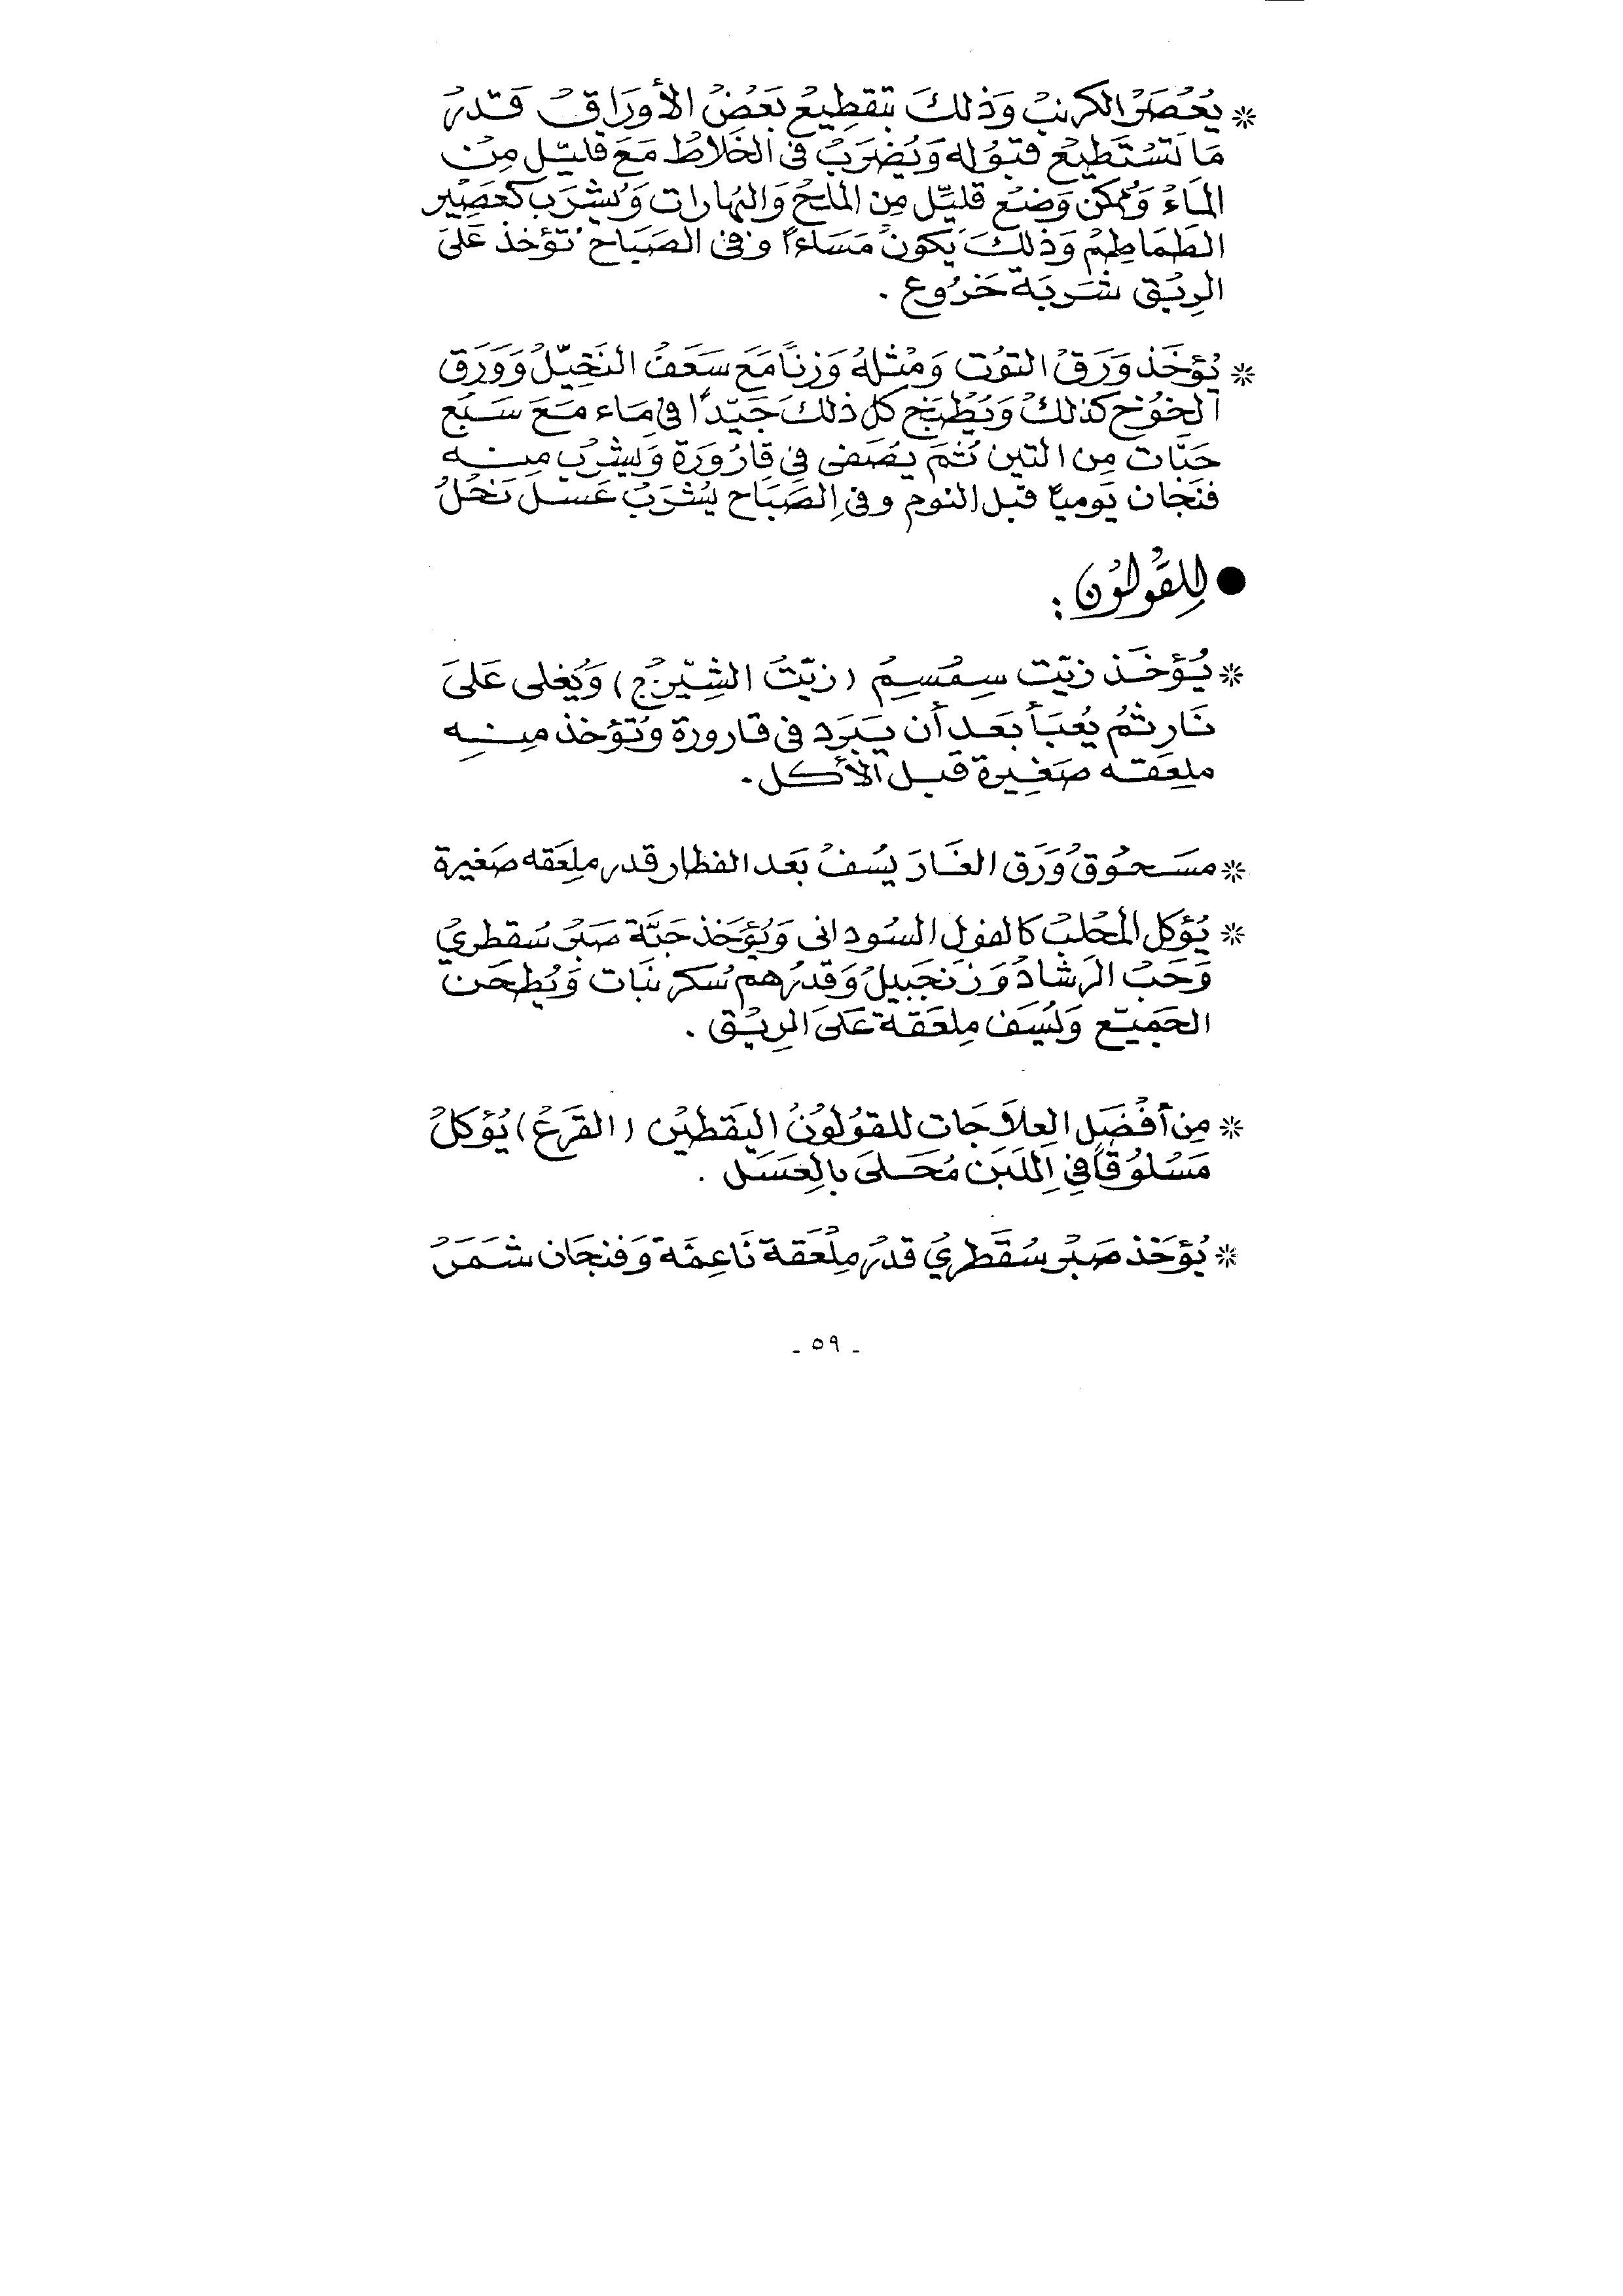 * يُعْصَرُ الكرنبْ وَذلكَ بتقطِيعْ بَعْضْ الأورَاقْ قَدرْ
مَا تَسْتَطيعْ قبُوله وَيُضرَبْ فى الخَلاطْ مَعَ قليّل مِنْ
المَاءْ وَيُمكن وَضعْ قليّل مِن الملحْ وَالبُهارات وَيُشرَب كعَصِير
الطَمَاطِمْ وَذلكَ يَكونْ مَسَاءاً وفى الصَبَاحْ تؤخذ عَلىَ
الرِيْق شَربَة خَرْوع .
* يُؤخَذ وَرَقْ التوُت وَمْثلهُ وَزنًا مَعَ سَعَفْ النَخِيّلْ وَوَرَق
الخوُخْ كذلكْ وَيُطْبَخ كل ذلكَ جَيّدًا فى مَاء مَعَ سَبْع
حَبَّات مِن التين ثُمَ يصَفى فِي قارُورَة وَيشرْب مِنه
فنَجان يَومياً قبل النوم وفى الصَبَاح يُشرَبْ عَسل نَحْلْ
● لِلقَولوُنْ :
* يُؤخَذ زيّت سِمْسِمْ (زيّتْ الشِيّرَجْ) وَيُغلى عَلىَ
نَار ثمُ يعُبَأ بَعَد أن يَبَرد فى قارورة وَتؤخذ مِنهِ
ملعَقه صَغِيرة قَبل الأكل .
* مسَحوُق وَرَق الغَار يسُفْ بَعَد الفطار قدر ملِعَقه صَغيرة
* يُؤكل الْمحْلبْ كالفول السُودانى وَيُؤخَذ حَبَّة صَبرْ سُقطريْ
وَحَبْ الرَشادْ وَزنجَبيلْ وَقدْرهم سُكر نبَات وَيُطحَن
الجَميّع وَيُسَف مِلعَقة عَلىَ الرِيْق .
* مِن أفْضَل العِلاَجَات للقوُلوُنْ اليَقطيْن (القَرَعْ) يُؤكلْ
مَسْلوُقاً فِي اللَبَن مُحَلىَ بالِعَسَل .
* يُؤخَذ صَبرْ سُقَطريَ قدْر مِلْعَقة نَاعِمَة وَفنجَان شَمَرْ
- ٥٩ -